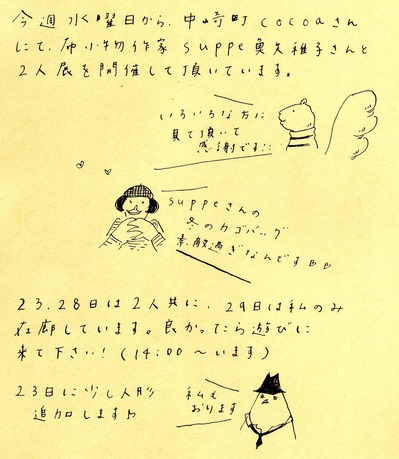 今週水曜日から、中崎町cocoaさん
にて、布小物作家suppe奥矢稚子さんと
2人展を開催して頂いています。
いろいろな方に
見て頂いて
感謝です!!
suppeさんの
冬のカゴバッグ
素敵過ぎなんです
23.28日は2人共に、29日は私のみ
在廊しています。良かったら遊びに
来て下さい!(14:00〜います)
23日に少し人形
追加します
私も
おります